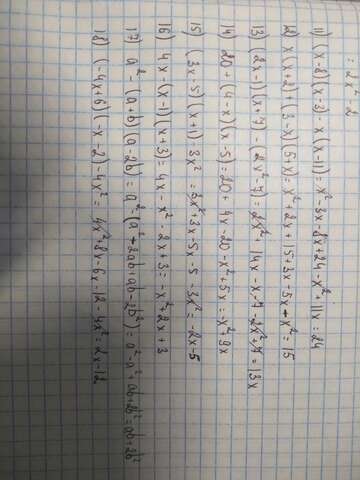 = 2x² - 2
11) (x-8)(x-3) - x(x-11) = x² - 3x - 8x + 24 - x² + 11x = 24
12) x(x+2) + (3-x)(5+x) = x² + 2x + 15 + 3x - 5x + x² = 15
13) (2x-1)(x+7) - (2x²-7) = 2x² + 14x - x - 7 - 2x² + 7 = 13x
14) 20 + (4-x)(x-5) = 20 + 4x - 20 - x² + 5x = -x² + 9x
15) (3x-5)(x+1) - 3x² = 3x² + 3x - 5x - 5 - 3x² = -2x - 5
16) 4x - (x-1)(x+3) = 4x - x² - 2x + 3 = -x² + 2x + 3
17) a² - (a+b)(a-2b) = a² - (a² - 2ab + ab - 2b²) = a² - a² + ab + 2b² = ab + 2b²
18) (-4x+6)(-x-2) - 4x² = 4x² + 8x - 6x - 12 - 4x² = 2x - 12